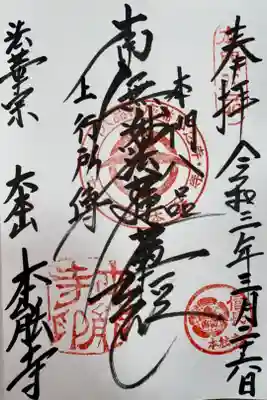 奉拝
令和二年三月二十六日
本門八品
南無妙法蓮華経
上行所傳
法華宗
大本山
本能寺